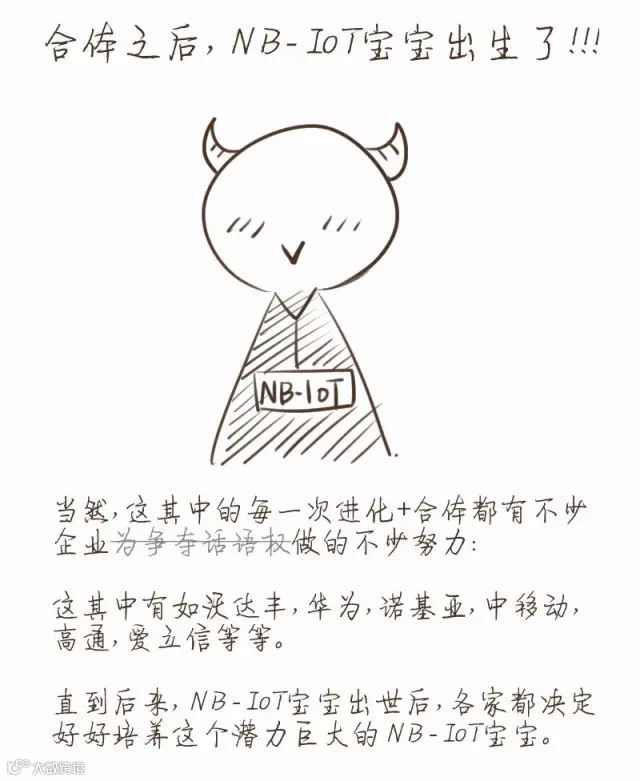 合体之后,NB-IoT宝宝出生了!!!
NB-IoT
当然,这其中的每一次进化+合体都有不少
企业为争夺话语权做的不少努力:
这其中有如沃达丰,华为,诺基亚,中移动,
高通,爱立信等等。
直到后来,NB-IoT宝宝出世后,各家都决定
好好培养这个潜力巨大的NB-IoT宝宝。
大数跨境